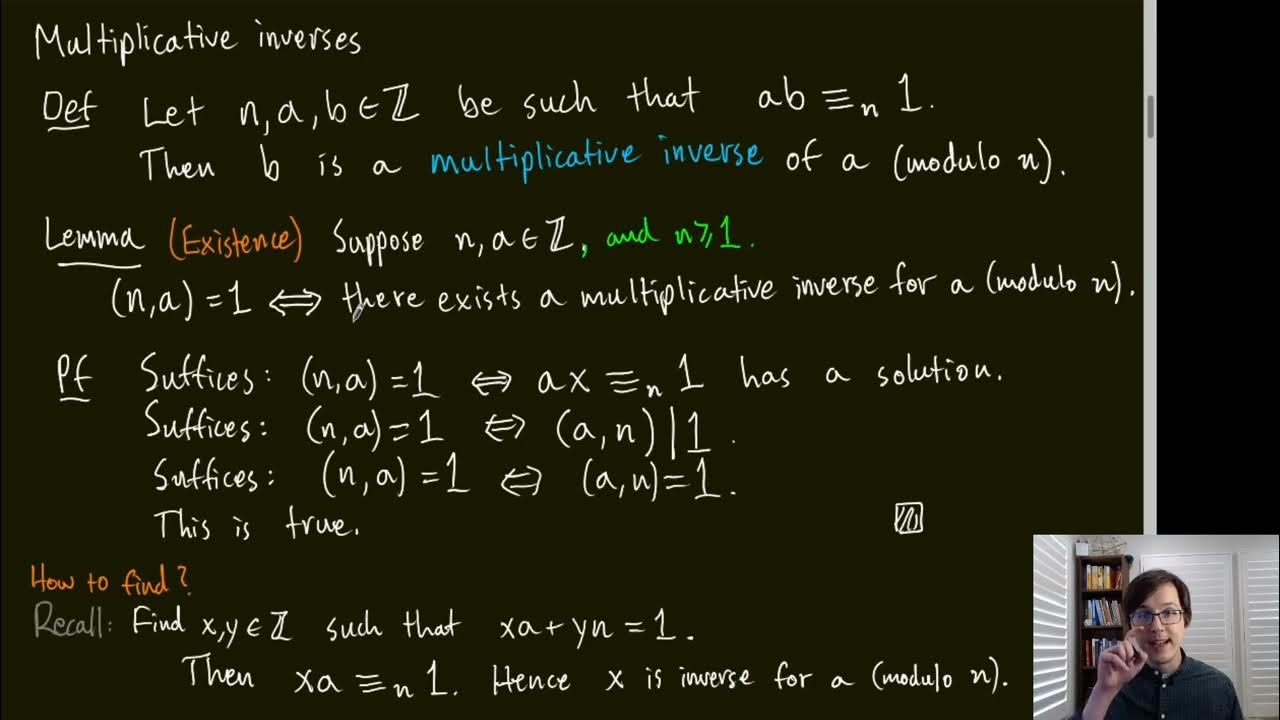 Multiplicative inverses
Def Let n, a, b ∈ ℤ be such that ab ≡ₙ 1.
Then b is a multiplicative inverse of a (modulo n).
Lemma (Existence) Suppose n, a ∈ ℤ, and n ≥ 1.
(n, a) = 1 ⇔ there exists a multiplicative inverse for a (modulo n).
Pf Suffices: (n, a) = 1 ⇔ ax ≡ₙ 1 has a solution.
Suffices: (n, a) = 1 ⇔ (a, n) | 1.
Suffices: (n, a) = 1 ⇔ (a, n) = 1.
This is true.
How to find?
Recall: Find x, y ∈ ℤ such that xa + yn = 1.
Then xa ≡ₙ 1. Hence x is inverse for a (modulo n).